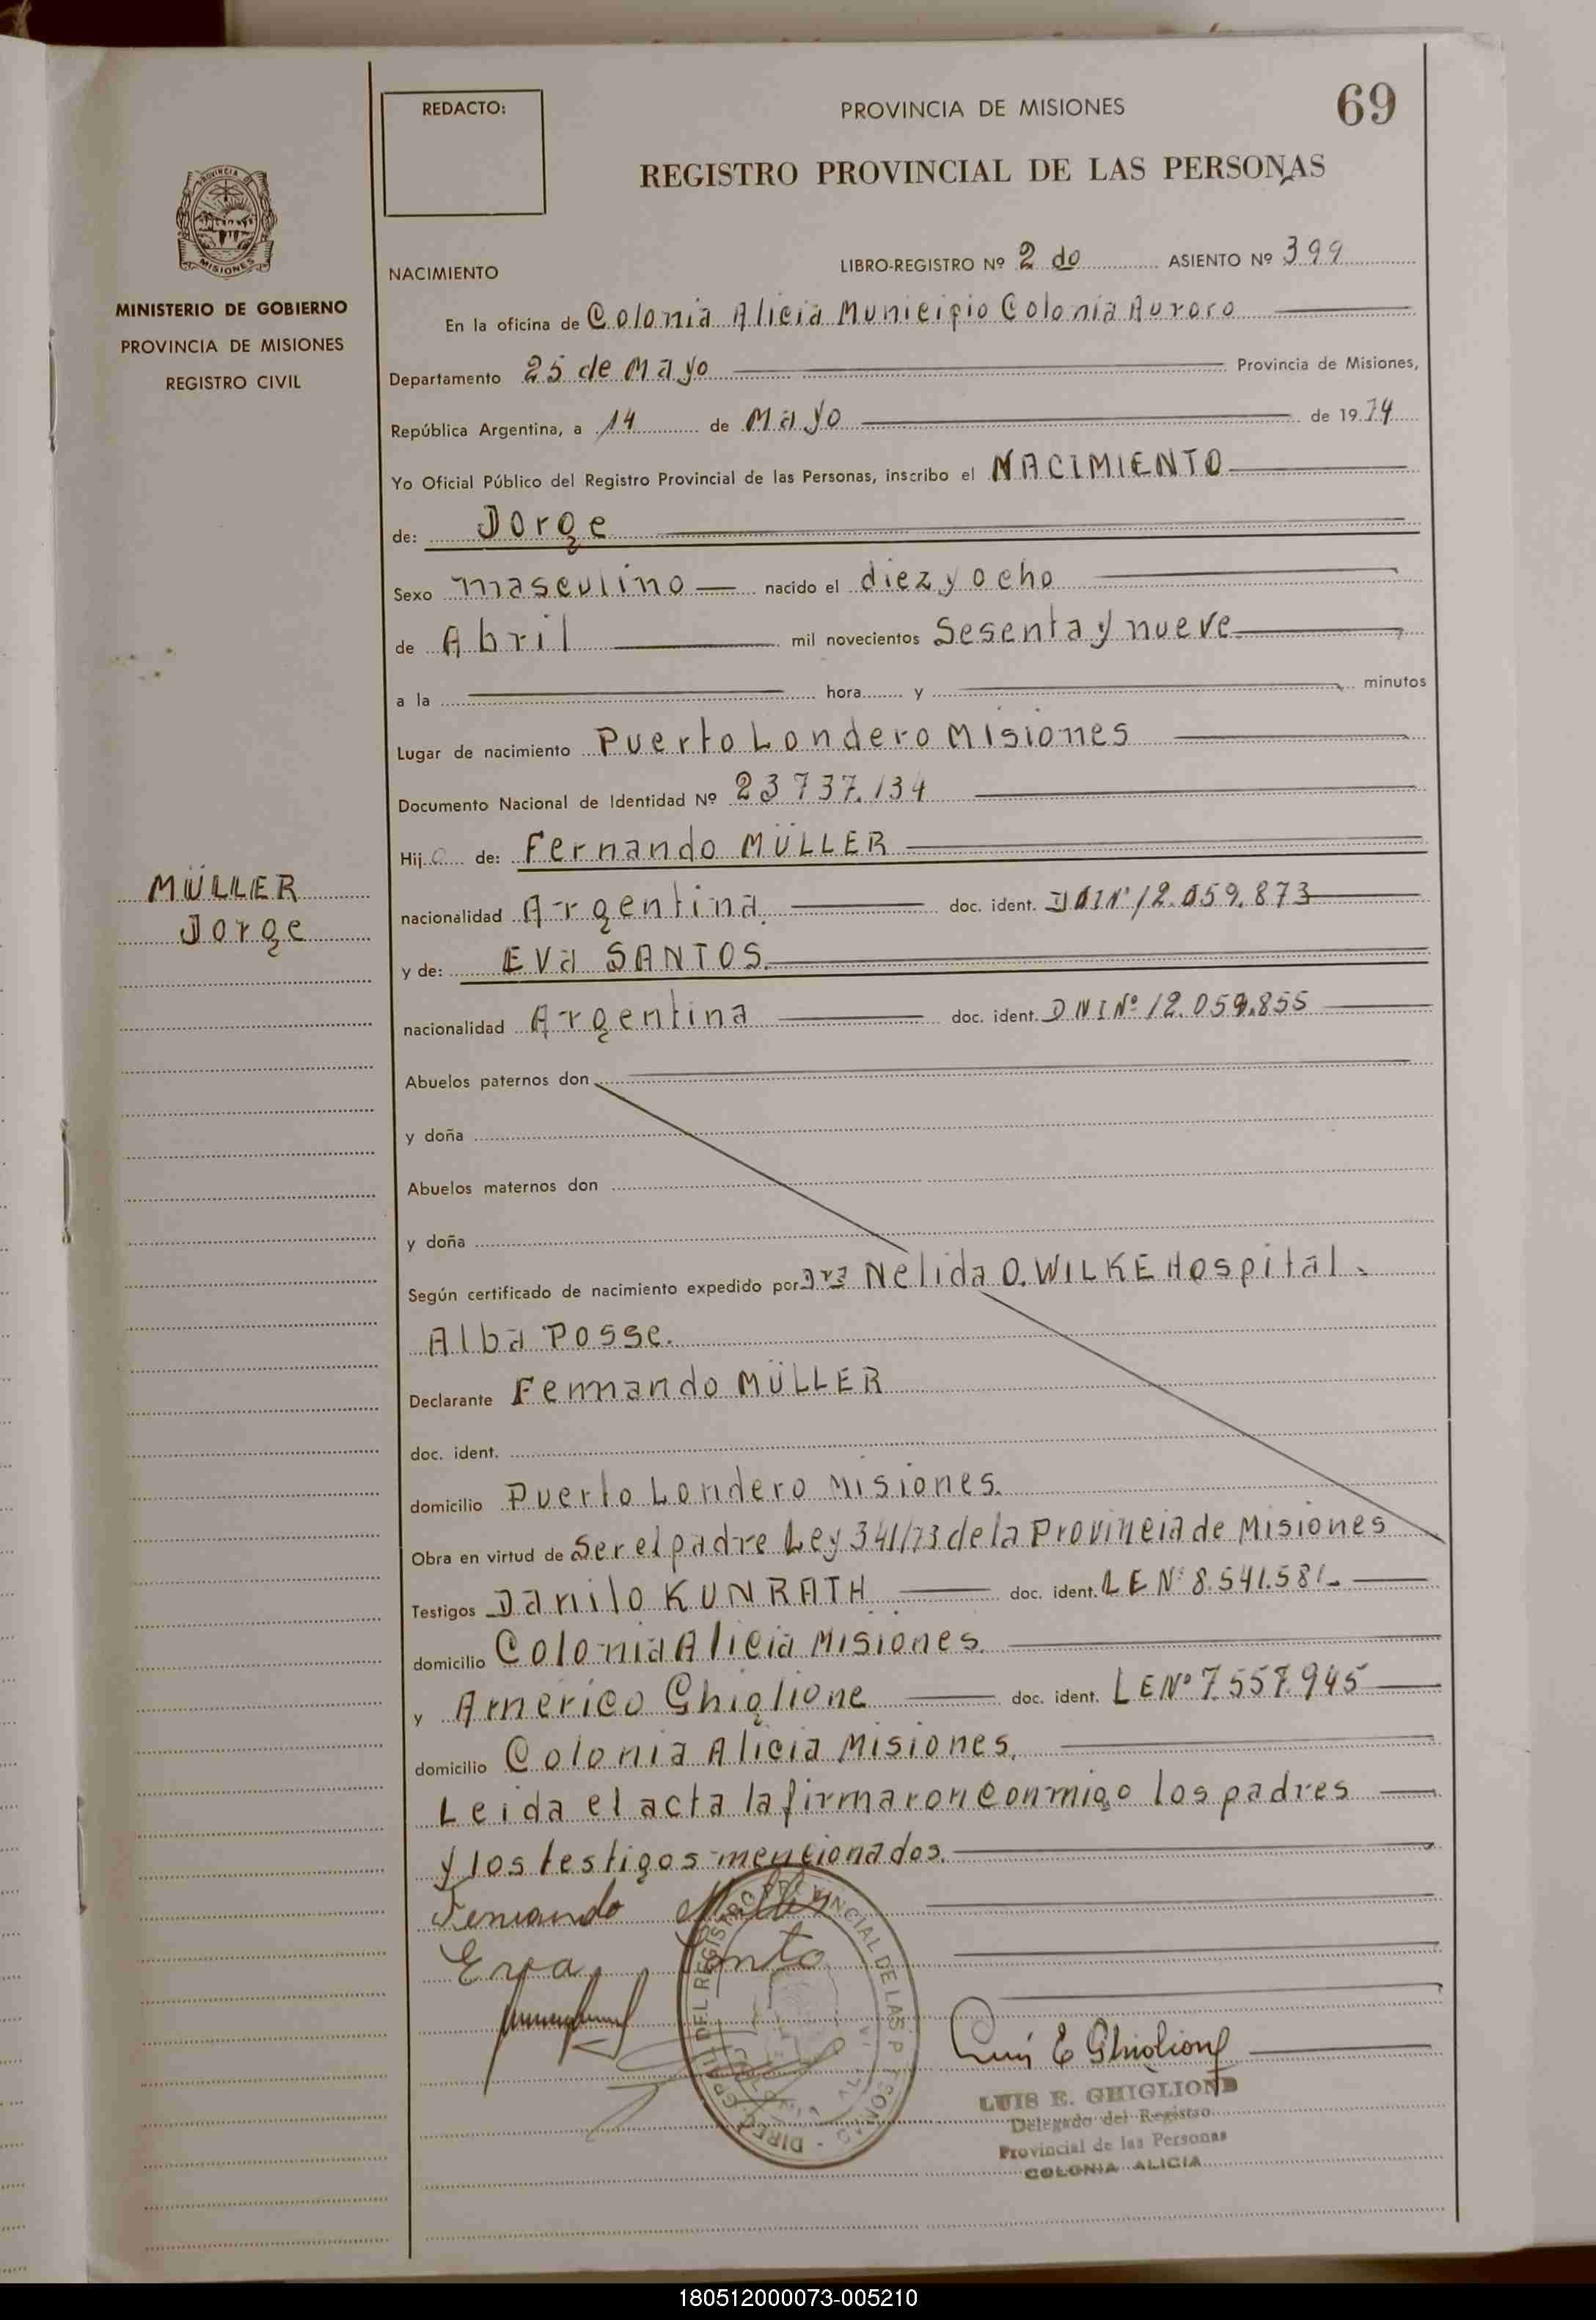 REDACTO:
PROVINCIA DE MISIONES
69
REGISTRO PROVINCIAL DE LAS PERSONAS
PROVINCIA DE
MISIONES
MINISTERIO DE GOBIERNO
PROVINCIA DE MISIONES
REGISTRO CIVIL
NACIMIENTO
LIBRO-REGISTRO Nº 2 do ASIENTO Nº 399
En la oficina de Colonia Alicia Municipio Colonia Auroro
Departamento 25 de Mayo Provincia de Misiones,
República Argentina, a 14 de Mayo de 1974
Yo Oficial Público del Registro Provincial de las Personas, inscribo el NACIMIENTO
de: Jorge
Sexo masculino nacido el diez y ocho
de Abril mil novecientos Sesenta y nueve
a la hora y minutos
Lugar de nacimiento Puerto Londero Misiones
Documento Nacional de Identidad Nº 23737.134
Hijo de: Fernando MÜLLER
MÜLLER
Jorge
nacionalidad Argentina. doc. ident. DNI Nº 12.059.873
y de: EVa SANTOS.
nacionalidad Argentina doc. ident. DNI Nº 12.059.855
Abuelos paternos don
y doña
Abuelos maternos don
y doña
Según certificado de nacimiento expedido por Dra Nelida O. WILKE Hospital.
Alba Posse.
Declarante Fernando MÜLLER
doc. ident.
domicilio Puerto Londero Misiones.
Obra en virtud de Ser el padre Ley 341/73 de la Provincia de Misiones
Testigos Danilo KUNRATH doc. ident. LE Nº 8.541.581.
domicilio Colonia Alicia Misiones.
y Américo Ghiglione doc. ident. LE Nº 7.557.945
domicilio Colonia Alicia Misiones.
Leida el acta la firmaron conmigo los padres
y los testigos mencionados.
Fernando Müller
Eva Santo
Luis E Ghiglione
LUIS E. GHIGLIONE
Delegado del Registro
Provincial de las Personas
COLONIA ALICIA
180512000073-005210